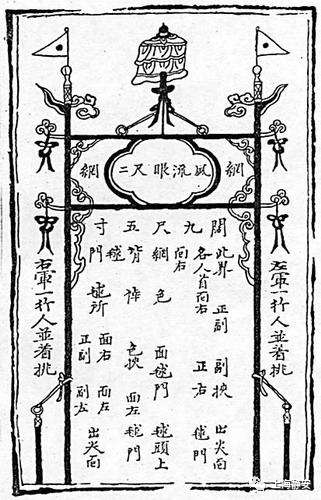 網
流眼尺二
網
左軍一行人並着挑
闊 此界 正副 副挾 出尖向
各人首向右 正右 毬門
九 向右
尺 網 色 面毬門 毬頭上
五 背 作 色挾 面左 毬門
毬
寸 門 毬所 面右 面左 出尖向
正副 副左
右軍一行人並着挑
上海静安